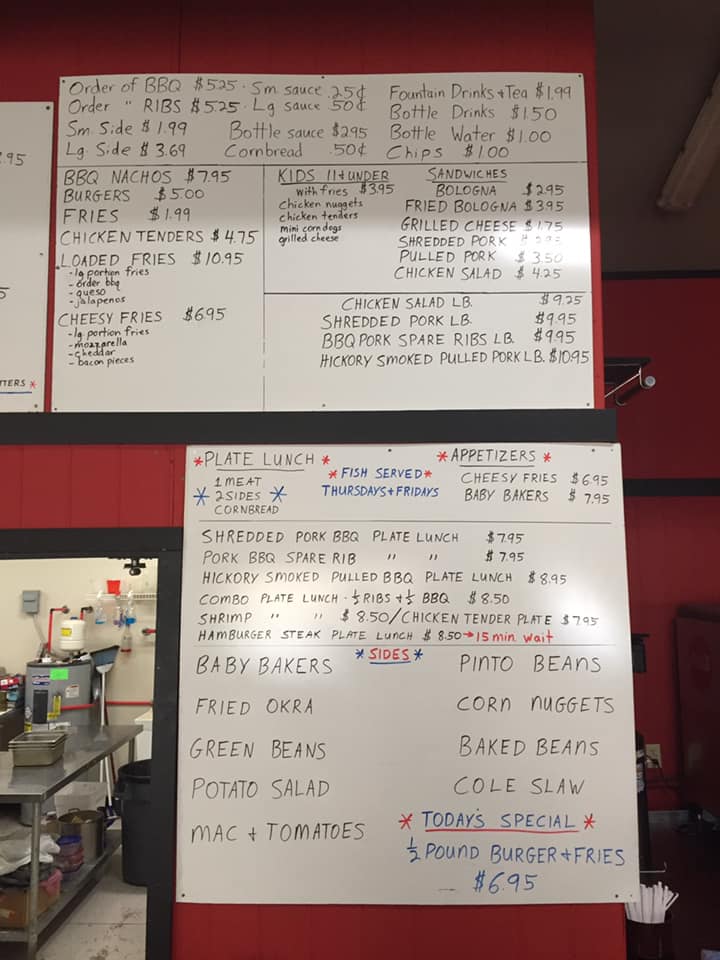 .95
5
TTERS *
Order of BBQ $5.25 · Sm sauce .25¢
Order " RIBS $5.25 · Lg sauce .50¢
Sm. Side $1.99 Bottle sauce $2.95
Lg. Side $3.69 Cornbread .50¢
Fountain Drinks + Tea $1.99
Bottle Drinks $1.50
Bottle Water $1.00
Chips $1.00
BBQ NACHOS $7.95
BURGERS $5.00
FRIES $1.99
CHICKEN TENDERS $4.75
LOADED FRIES $10.95
-lg portion fries
-order bbq
-queso
-jalapenos
CHEESY FRIES $6.95
-lg portion fries
-mozzarella
-cheddar
-bacon pieces
KIDS 11+UNDER
with fries $3.95
chicken nuggets
chicken tenders
mini corn dogs
grilled cheese
SANDWICHES
BOLOGNA $2.95
FRIED BOLOGNA $3.95
GRILLED CHEESE $1.75
SHREDDED PORK
PULLED PORK $3.50
CHICKEN SALAD $4.25
CHICKEN SALAD LB. $9.25
SHREDDED PORK LB. $9.95
BBQ PORK SPARE RIBS LB. $9.95
HICKORY SMOKED PULLED PORK LB. $10.95
*PLATE LUNCH*
1 MEAT
* 2 SIDES *
CORNBREAD
* FISH SERVED *
THURSDAYS + FRIDAYS
* APPETIZERS *
CHEESY FRIES $6.95
BABY BAKERS $7.95
SHREDDED PORK BBQ PLATE LUNCH $7.95
PORK BBQ SPARE RIB " " $7.95
HICKORY SMOKED PULLED BBQ PLATE LUNCH $8.95
COMBO PLATE LUNCH - ½ RIBS + ½ BBQ $8.50
SHRIMP " " $8.50/CHICKEN TENDER PLATE $7.95
HAMBURGER STEAK PLATE LUNCH $8.50→15 min. wait
* SIDES *
BABY BAKERS PINTO BEANS
FRIED OKRA CORN NUGGETS
GREEN BEANS BAKED BEANS
POTATO SALAD COLE SLAW
MAC + TOMATOES
* TODAY'S SPECIAL *
½ POUND BURGER + FRIES
$6.95